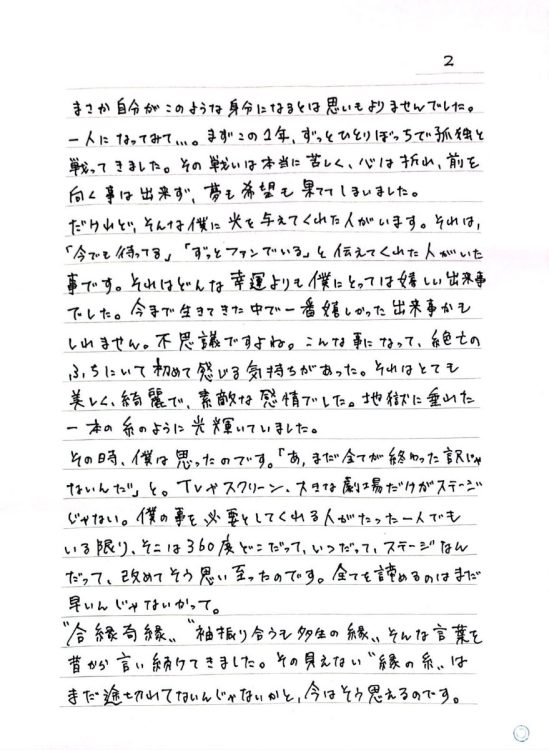 2
まさか自分がこのような身分になるとは思いもよりませんでした。
一人になってみて…。まずこの1年、ずっとひとりぼっちで孤独と
戦ってきました。その戦いは本当に苦しく、心は折れ、前を
向く事は出来ず、夢も希望も果ててしまいました。
だけれど、そんな僕に光を与えてくれた人がいます。それは、
「今でも待ってる」「ずっとファンでいる」と伝えてくれた人がいた
事です。それはどんな幸運よりも僕にとっては嬉しい出来事
でした。今まで生きてきた中で一番嬉しかった出来事かも
しれません。不思議ですよね。こんな事になって、絶亡の
ふちにいて初めて感じる気持ちがあった。それはとても
美しく、綺麗で、素敵な感情でした。地獄に垂れた
一本の糸のように光輝いていました。
その時、僕は思ったのです。「あ、まだ全てが終わった訳じゃ
ないんだ」と。TVやスクリーン、大きな劇場だけがステージ
じゃない。僕の事を必要としてくれる人がたった一人でも
いる限り、そこは360度どこだって、いつだって、ステージなん
だって、改めてそう思い至ったのです。全てを諦めるのはまだ
早いんじゃないかって。
"合縁奇縁〟"袖振り合うも多生の縁〟そんな言葉を
昔から言い続けてきました。その見えない"縁の糸〟は
まだ途切れてないんじゃないかと、今はそう思えるのです。